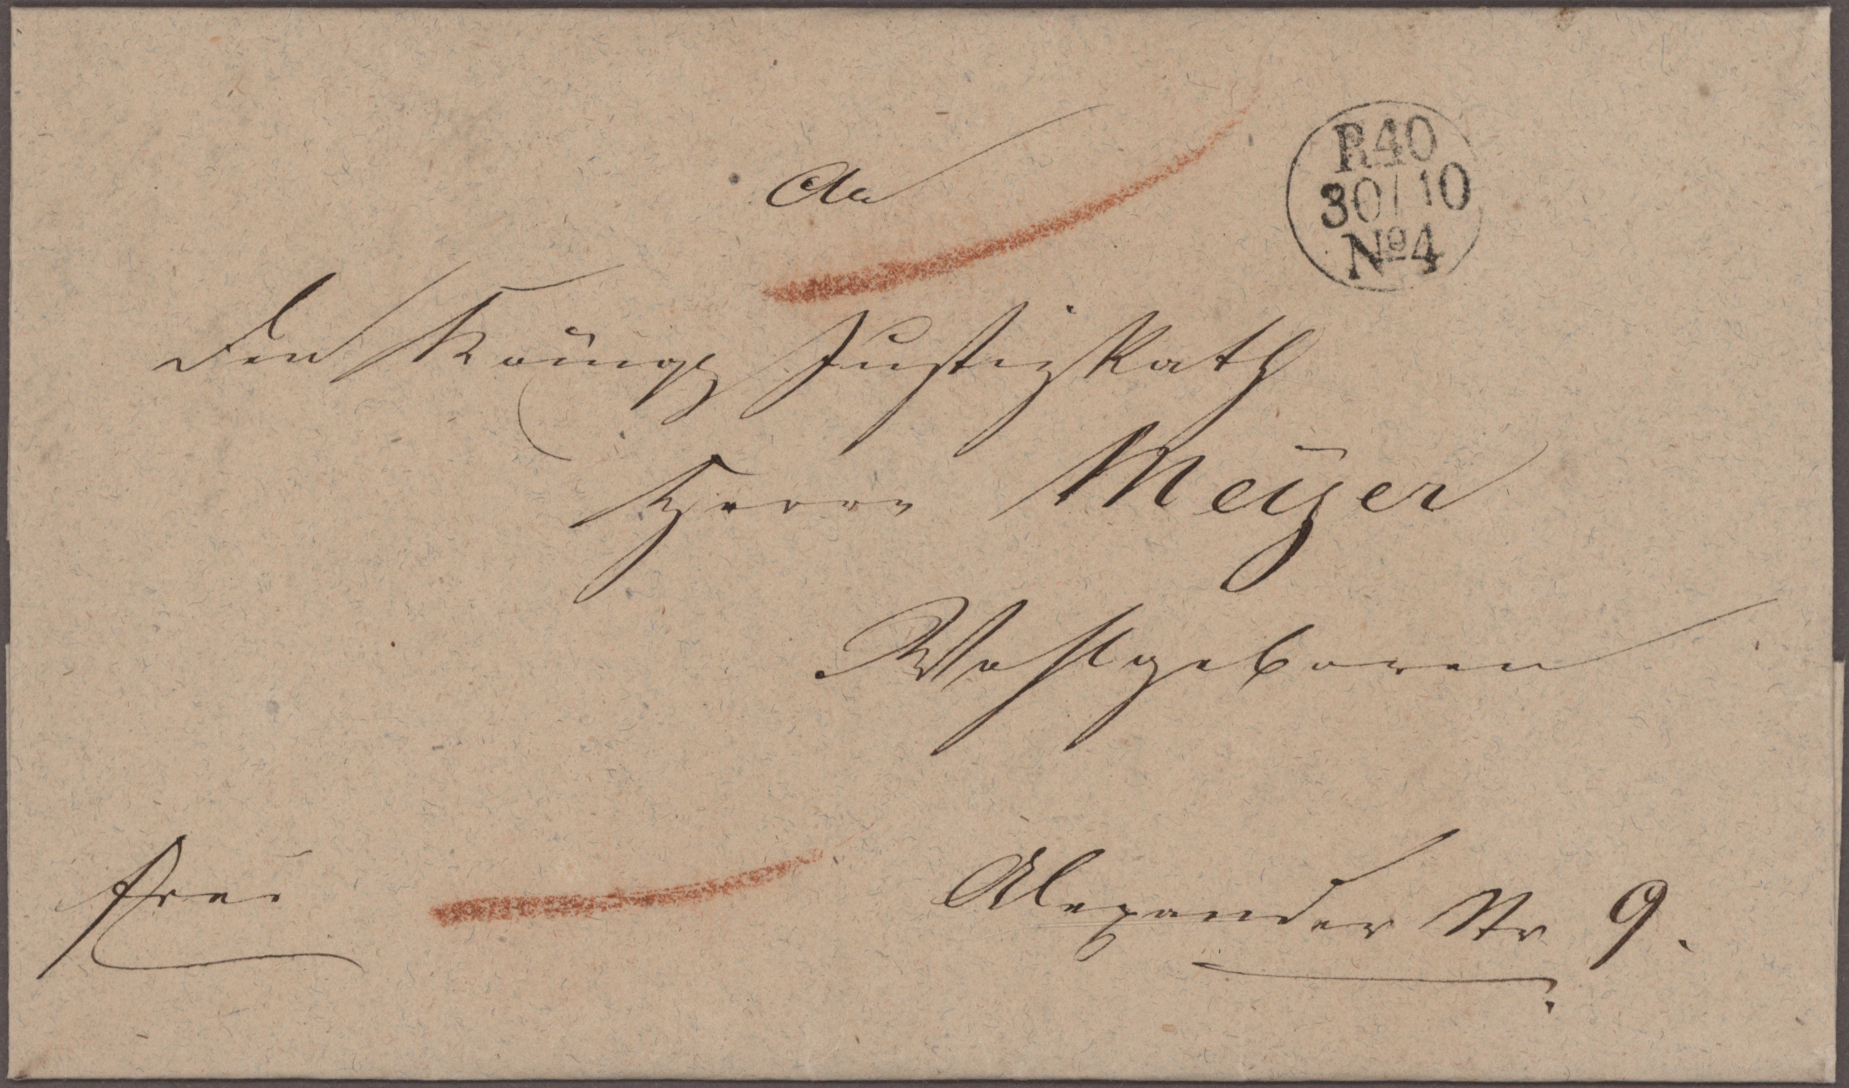 R40
30/10
Nº4
An
den Königl Justiz Rath
Herrn Meÿer
Wohlgeboren
frei
Alexander Str 9.